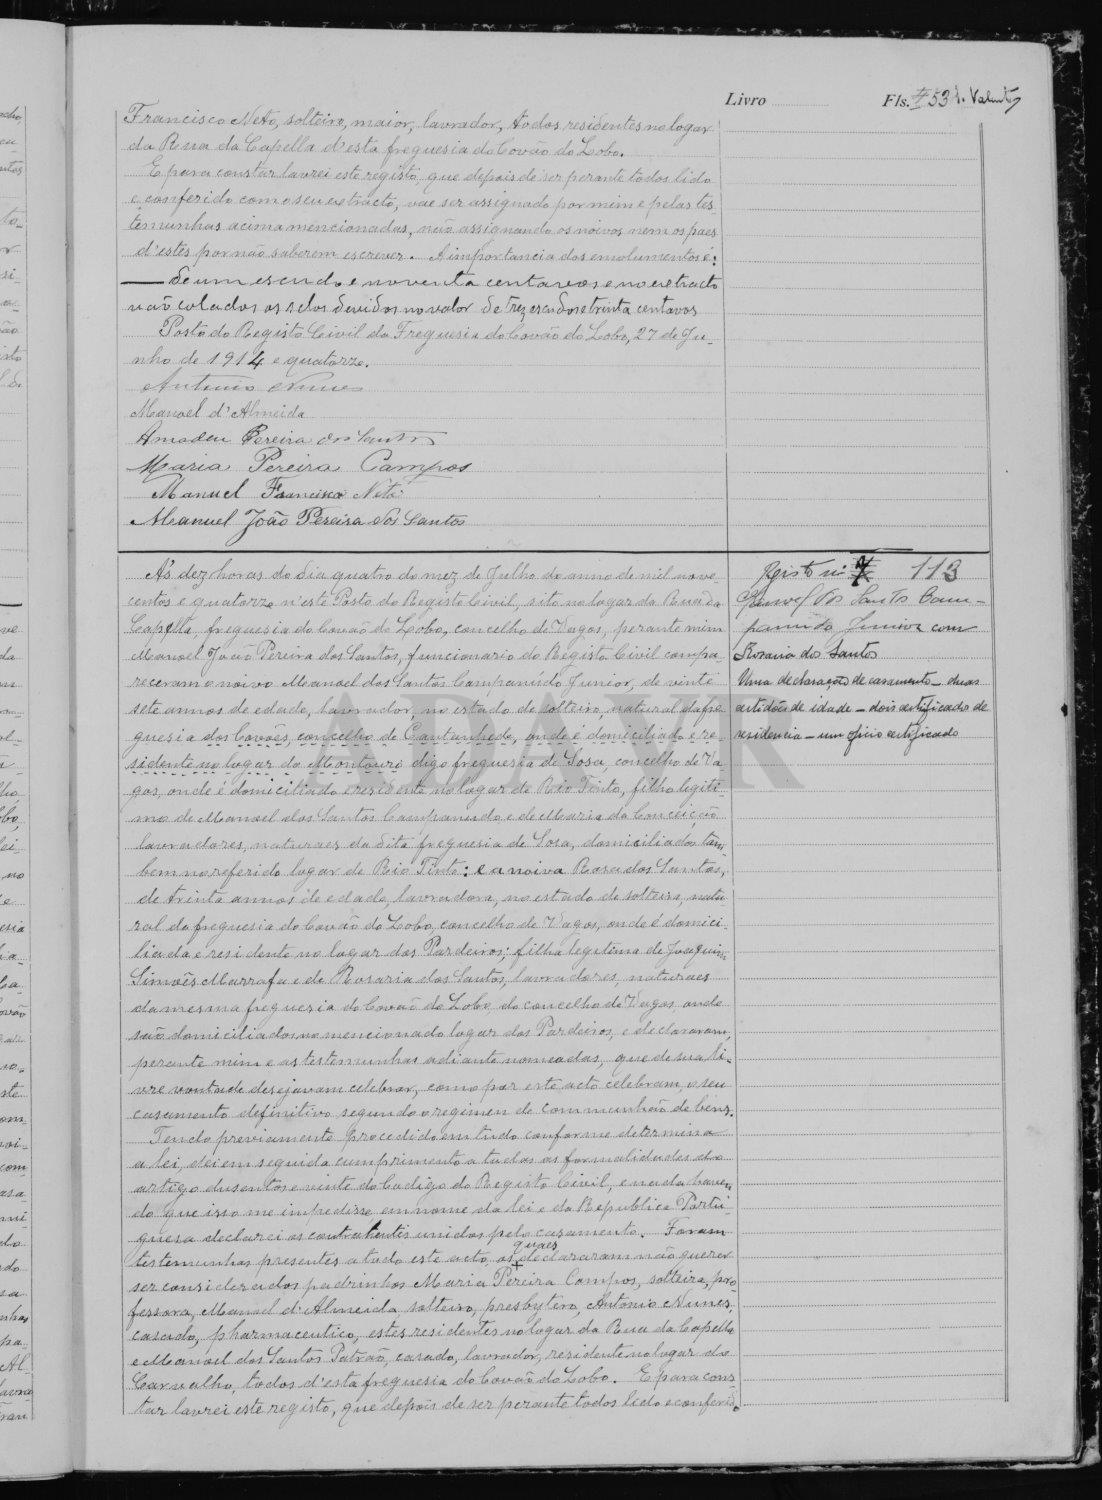 Livro Fls. 53
Francisco Neto, solteiro, maior, lavrador, todos residentes no logar
da Rua da Capella d'esta freguesia do Covão do Lobo.
E para constar lavrei este registo, que depois de ser perante todos lido
e conferido com o seu extracto, vae ser assignado por mim e pelas tes-
temunhas acima mencionadas, não assignando os noivos nem os paes
d'estes por não saberem escrever. A importancia dos emolumentos é:
— de um escudo e noventa centavos e no extracto
vaõ colados os selos devidos no valor de trez escudos e trinta centavos
Posto do Registo Civil da Freguesia do Covão do Lobo, 27 de Ju-
nho de 1914 e quatorze.
Antonio Nunes
Manoel d'Almeida
Amadeu Pereira dos Santos
Maria Pereira Campos
Manuel Francisco Neto
Manuel João Pereira dos Santos
A's dez horas do dia quatro do mez de Julho do anno de mil nove-
centos e quatorze n'este Posto do Registo Civil, sito no logar da Rua da
Capella, freguesia do Covão do Lobo, concelho de Vagos, perante mim
Manoel João Pereira dos Santos, funcionario do Registo Civil compa-
receram o noivo Manoel dos Santos Campanúdo Junior, de vinte
sete annos de edade, lavrador, no estado de solteiro, natural da fre-
guesia dos Covões, concelho de Cantanhede, onde é domiciliado e re-
sidente no logar do Montouro digo freguesia de Sosa, concelho de Va-
gos, onde é domiciliado e residente no logar de Rio Tinto, filho legiti-
mo de Manoel dos Santos Campanudo e de Maria da Conceição
lavradores, naturaes da dita freguesia de Sosa, domiciliados tam-
bem no referido logar de Rio Tinto: e a noiva Rosa dos Santos,
de trinta annos de edade, lavradora, no estado de solteira, natu-
ral da freguesia do Covão do Lobo, concelho de Vagos, onde é domici-
liada e residente no logar dos Pardeiros; filha legitima de Joaquim
Simões Marrafa e de Rosaria dos Santos, lavradores, naturaes
da mesma freguesia do Covão do Lobo, do concelho de Vagos, onde
são domiciliados no mencionado logar dos Pardeiros, e declararam,
perante mim e as testemunhas adiante nomeadas, que de sua li-
vre vontade desejavam celebrar, como por este acto celebram, o seu
casamento definitivo segundo o regimen de communhão de bens.
Tendo previamente procedido em tudo conforme determina
a lei, dei em seguida cumprimento a todas as formalidades do
artigo dusentos e vinte do Codigo do Registo Civil, e nada haven-
do que isso me impedisse em nome da lei e da Republica Portu-
guesa declarei os contrahentes unidos pelo casamento. Foram
testemunhas presentes a todo este acto, os quaes declararam não querer
ser considerados padrinhos Maria Pereira Campos, solteira, pro-
fessora, Manoel d'Almeida solteiro, presbytero, Antonio Nunes,
casado, pharmaceutico, estes residentes no logar da Rua da Capella
e Manoel dos Santos Patrão, casado, lavrador, residente no logar do
Carvalho, todos d'esta freguesia do Covão do Lobo. E para cons-
tar lavrei este registo, que depois de ser perante todos lido e conferido
Registo nº 7 113
Manoel dos Santos Cam-
panudo Junior com
Rosaria dos Santos
Uma declaração de casamento – duas
certidões de idade – dois certificado de
residencia – um oficio certificado
ADAVR